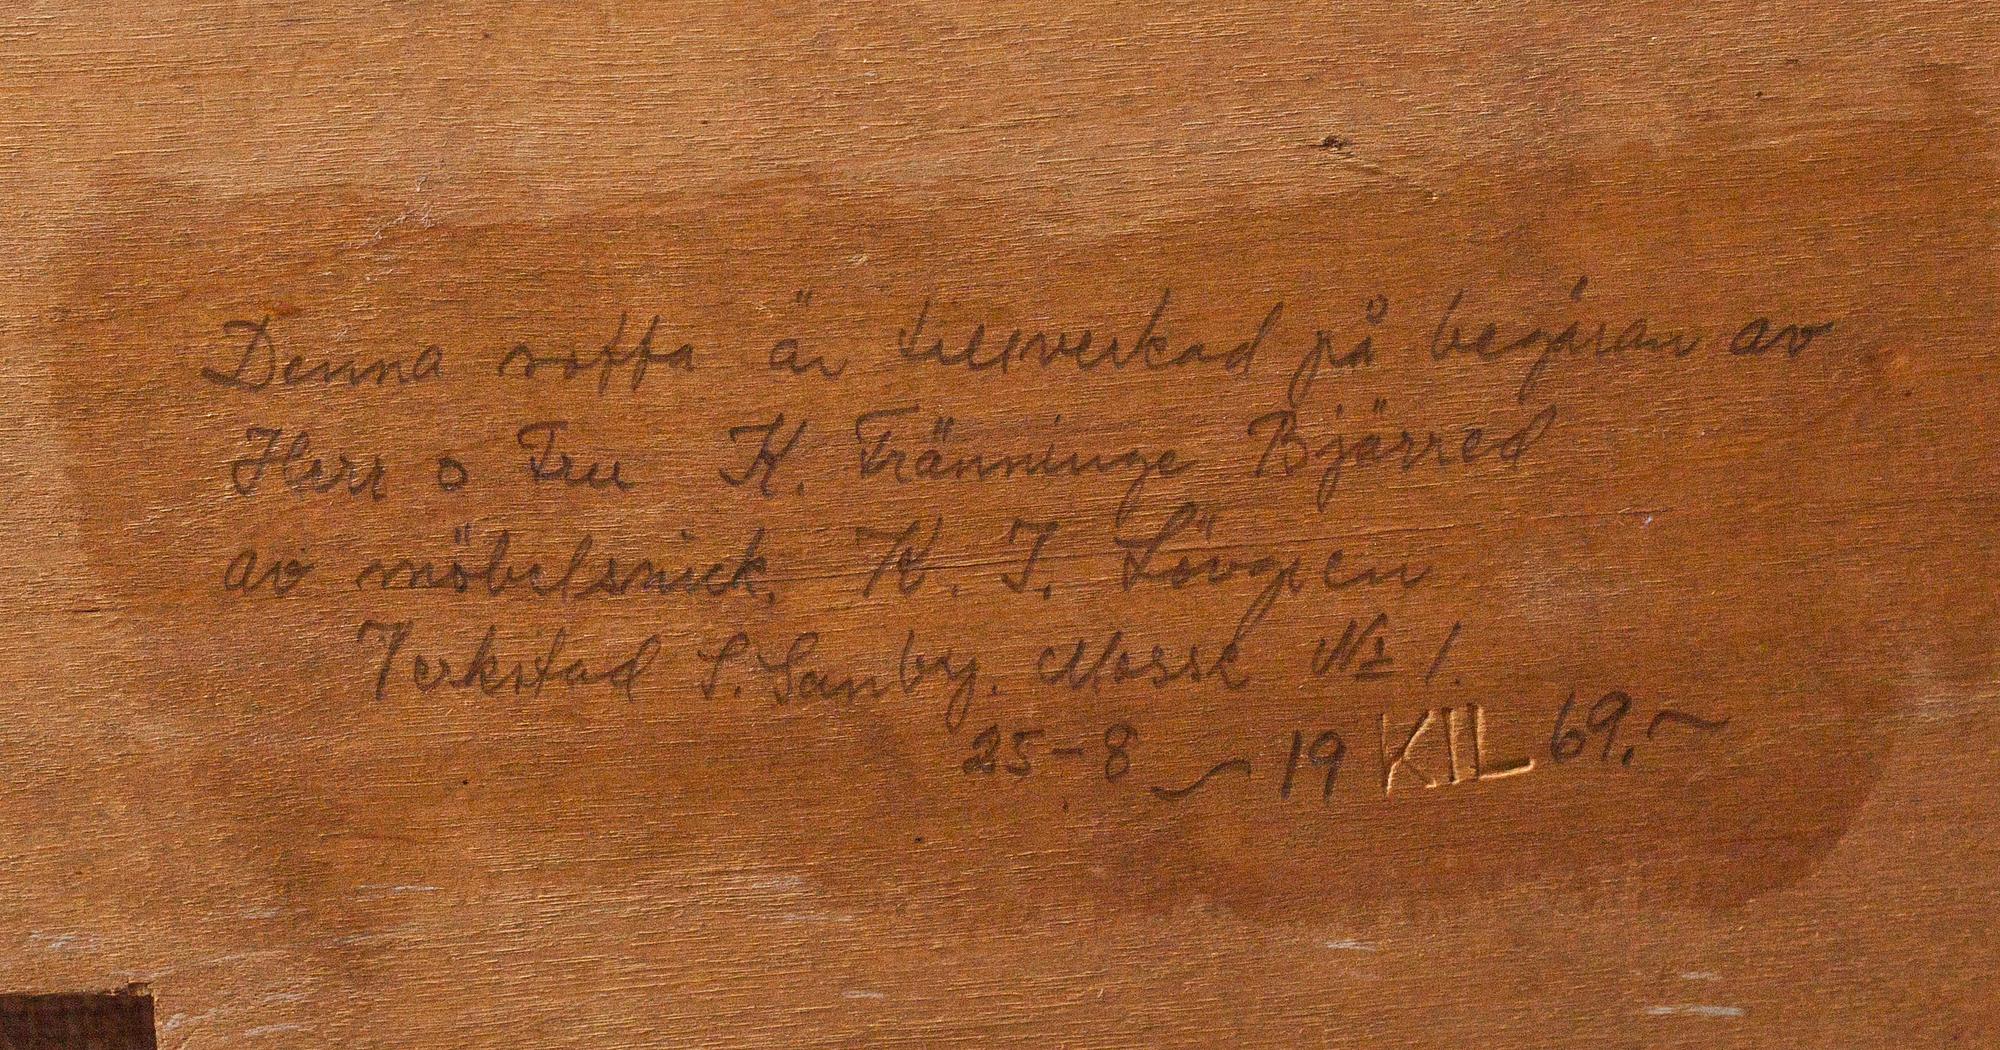 Denna soffa är tillverkad på begäran av
Herr o Fru K. Fränninge Bjärred
av möbelsnick. K. I. Lövgren
Verkstad S. Sanby. Mosse № 1.
25-8 ~ 19 KIL 69.~